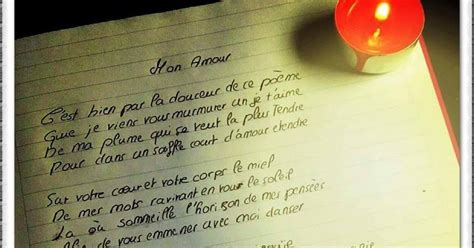 Mon Amour
C'est bien par la douceur de ce poème
Que je viens vous murmurer un je t'aime
De ma plume qui se veut la plus tendre
Pour dans un souffle court d'amour étendre
Sur votre cœur et votre corps le miel
De mes mots ravivant en vous le soleil
La où sommeille l'horizon de mes pensées
de vous emmener avec moi danser